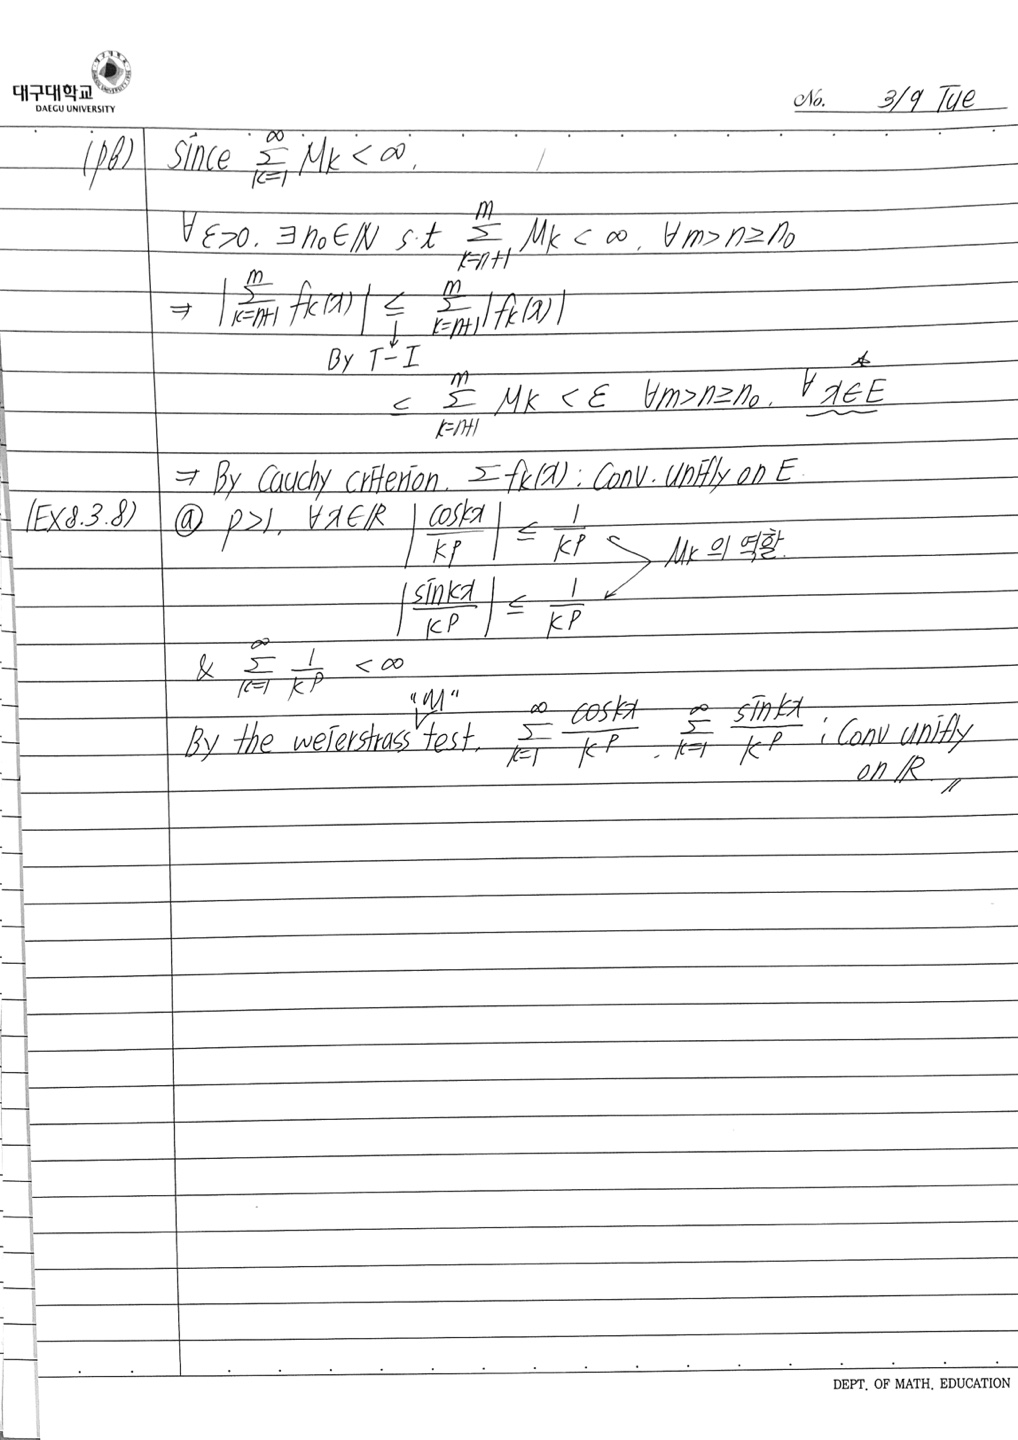 대구대학교
DAEGU UNIVERSITY
No. 3/9 Tue
(pf) Since ∞∑k=1 Mk < ∞.
∀ε>0. ∃n₀∈ℕ s.t m∑k=n+1 Mk < ∞. ∀m>n≥n₀
⇒ |m∑k=n+1 fk(x)| ≤ m∑k=n+1 |fk(x)|
By T-I
≤ m∑k=n+1 Mk < ε ∀m>n≥n₀. ∀x∈E
⇒ By Cauchy criterion. Σfk(x) : Conv. unifly on E
(EX8.3.8) ⓐ p>1, ∀x∈ℝ |coskx/k^p| ≤ 1/k^p Mk의 역할.
|sinkx/k^p| ≤ 1/k^p
& ∞∑k=1 1/k^p < ∞
"M"
By the weierstrass test. ∞∑k=1 coskx/k^p . ∞∑k=1 sinkx/k^p : Conv unifly
on ℝ. //
DEPT. OF MATH. EDUCATION